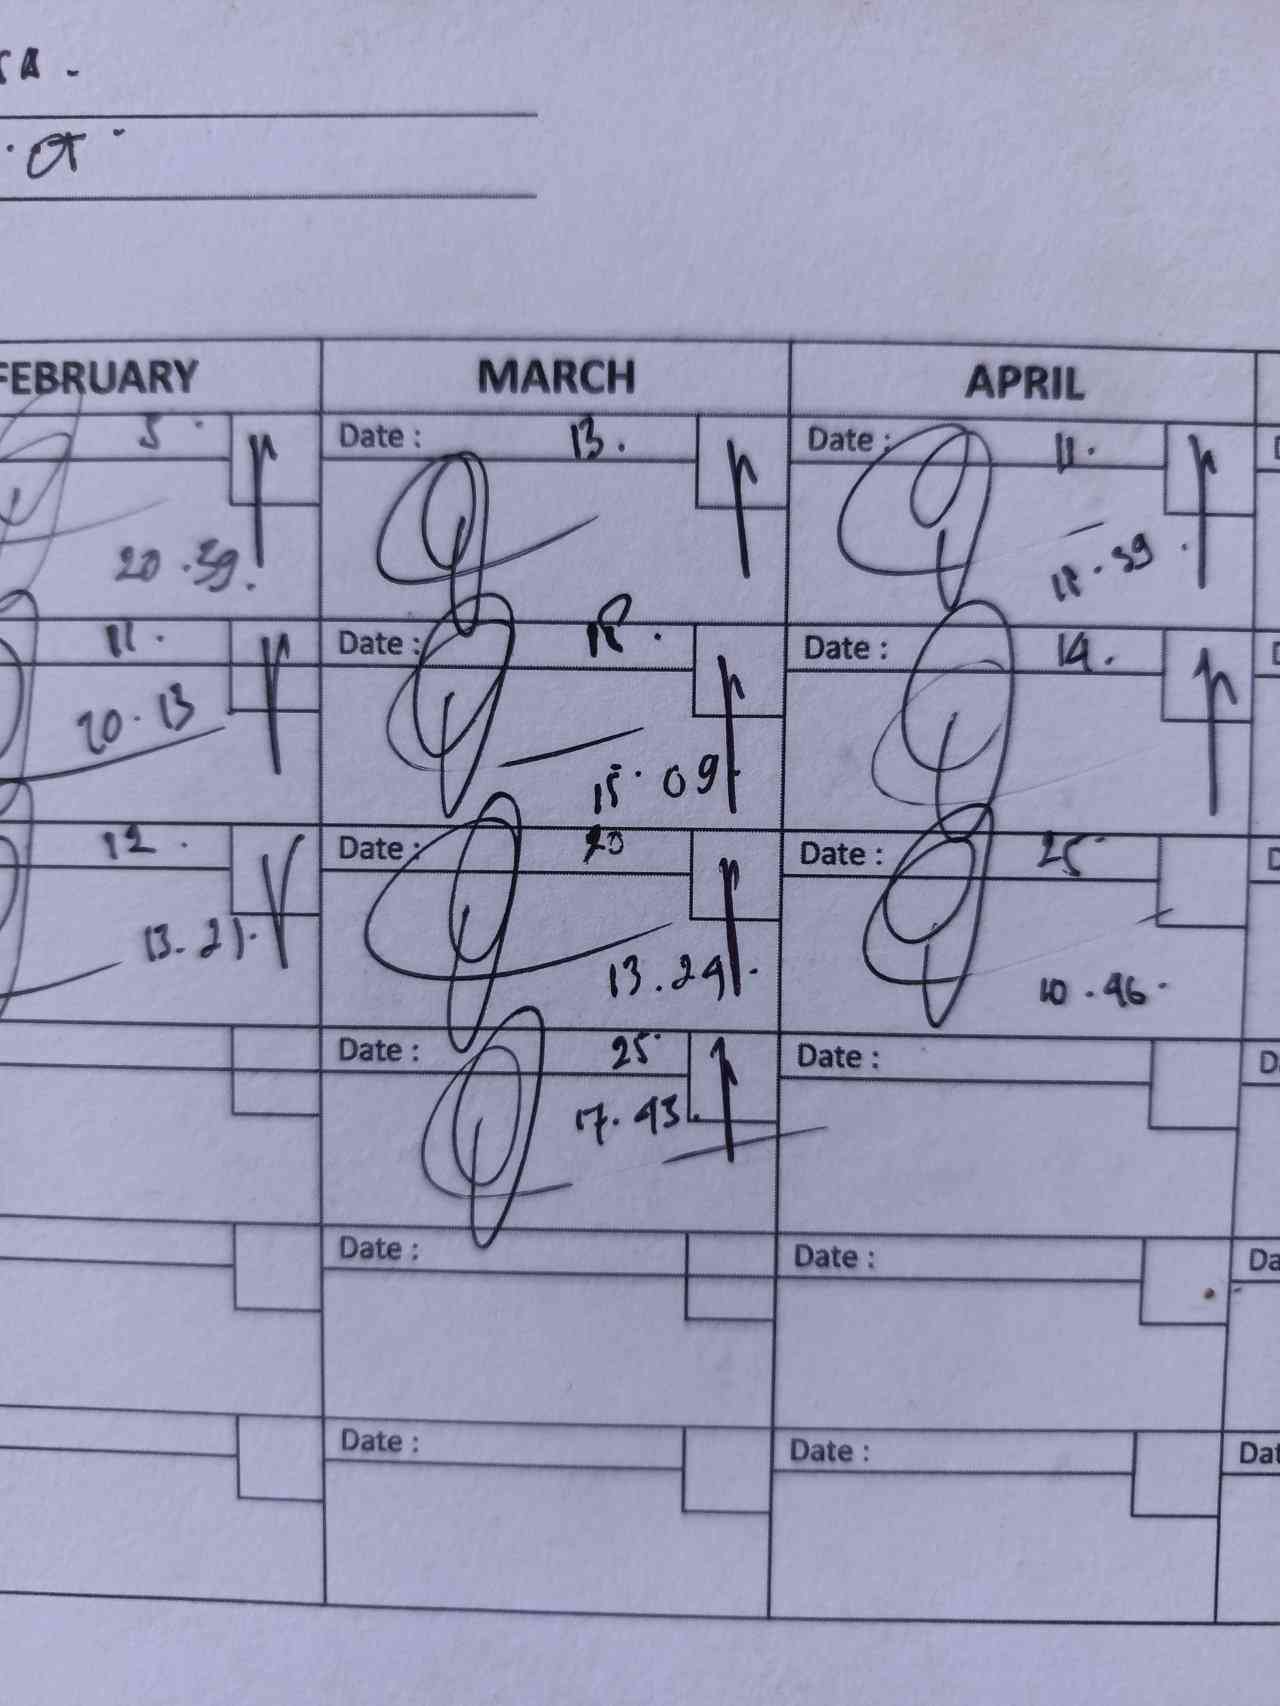 FEBRUARY MARCH APRIL
5. Date : 13. Date : 11.
20.39. 11.39.
11. Date : 18. Date : 14.
20.13 15.09
12. Date : 20 Date : 25
13.21. 13.29. 10.46.
Date : 25 Date :
17.43.
Date : Date :
Date : Date :